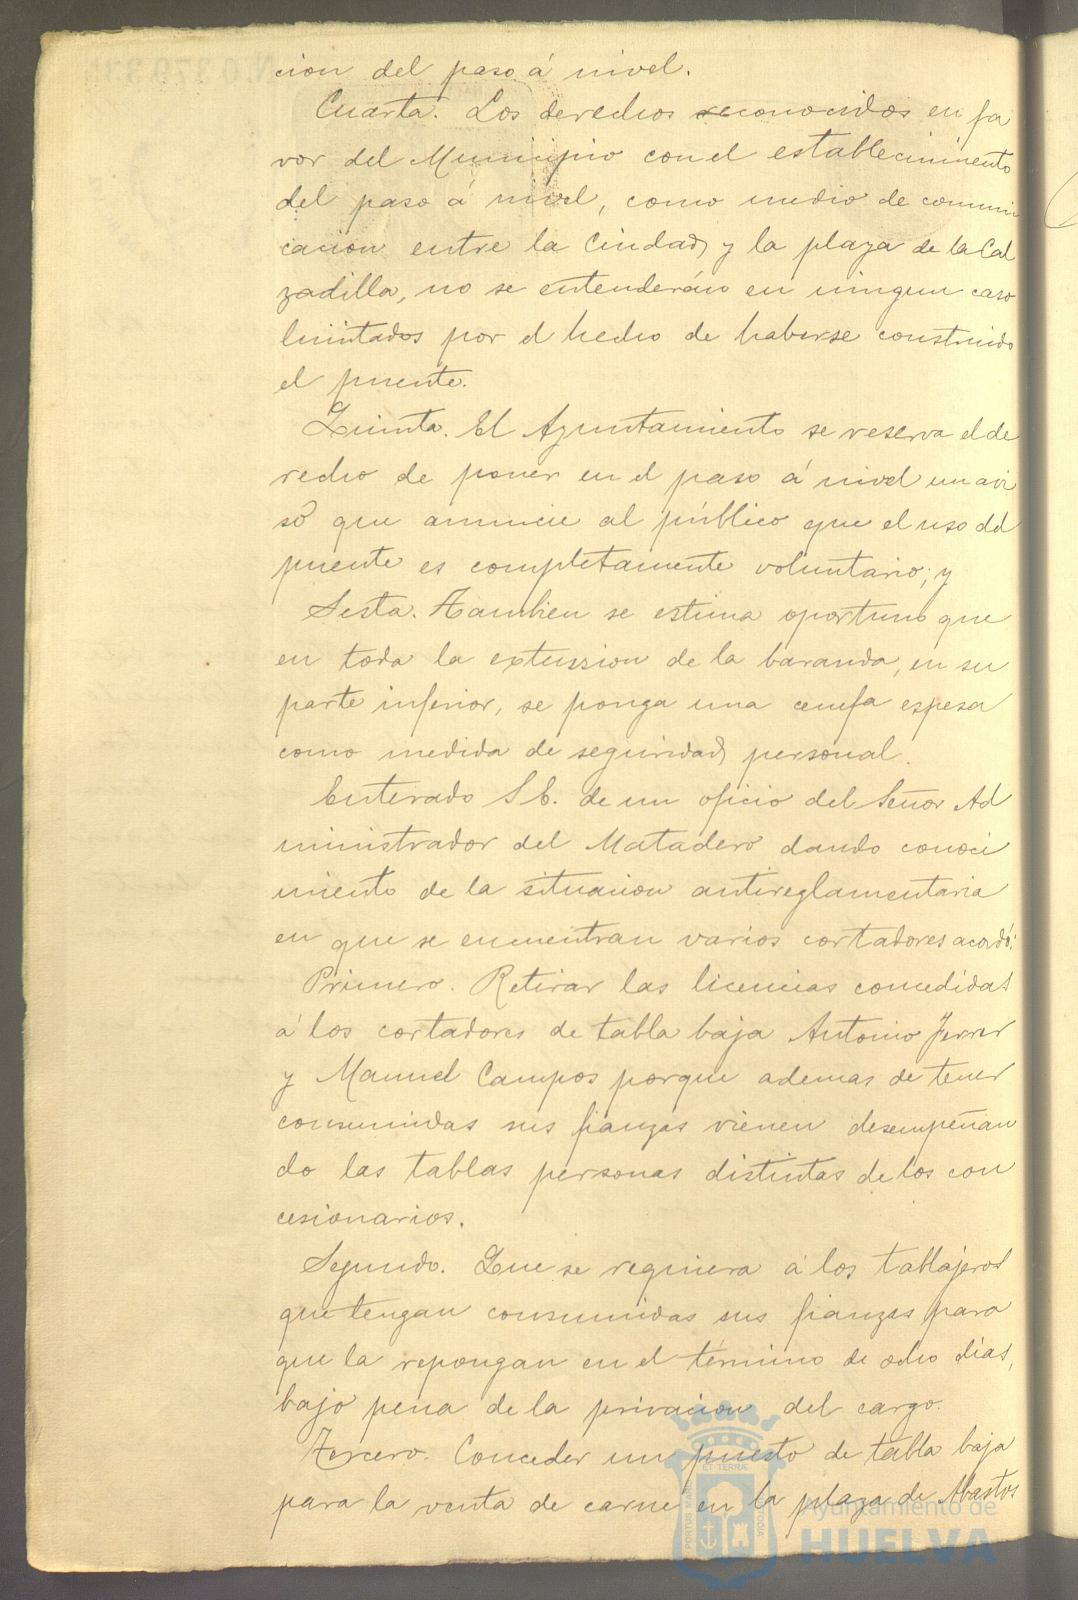 cion del paso á nivel.
Cuarta. Los derechos reconocidos en fa
vor del Municipio con el establecimiento
del paso á nivel, como medio de comuni
cacion entre la Ciudad y la plaza de la Cal
zadilla, no se entenderán en ningun caso
limitados por el hecho de haberse construido
el puente.
Quinta. El Ayuntamiento se reserva el de
recho de poner en el paso á nivel un avi
so que anuncie al público que el uso del
puente es completamente voluntario; y
Sesta. Tambien se estima oportuno que
en toda la extension de la baranda, en su
parte inferior, se ponga una cenefa espesa
como medida de seguridad personal.
Enterado S E. de un oficio del Señor Ad
ministrador del Matadero dando conoci
miento de la situacion antireglamentaria
en que se encuentran varios cortadores acordó:
Primero. Retirar las licencias concedidas
á los cortadores de tabla baja Antonio Ferrer
y Manuel Campos porque ademas de tener
consumidas sus fianzas vienen desempeñan
do las tablas personas distintas de los con
cesionarios.
Segundo. Que se requiera á los tablajeros
que tengan consumidas sus fianzas para
que la repongan en el término de ocho dias,
bajo pena de la privacion del cargo.
Tercero. Conceder un puesto de tabla baja
para la venta de carne en la plaza de Abastos
Ayuntamiento de
HUELVA